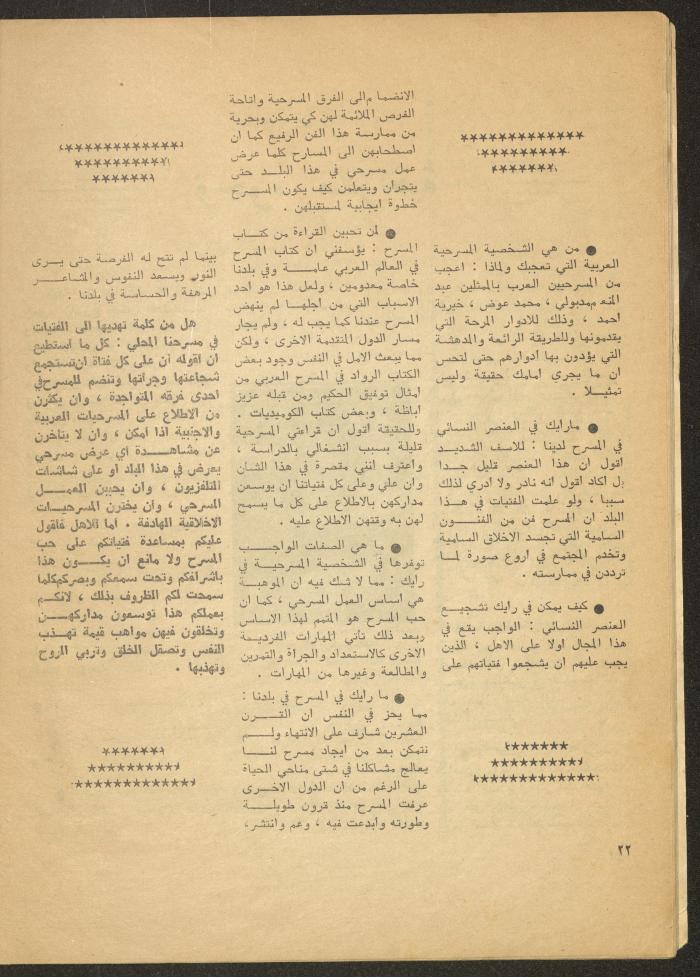 ★★★★★★★★★★★★★
★★★★★★★★★
★★★★★★★
● من هي الشخصية المسرحية
العربية التي تعجبك ولماذا : اعجب
من المسرحيين العرب بالممثلين عبد
المنعم مدبولي ، محمد عوض ، خيرية
احمد ، وذلك للادوار المرحة التي
يقدمونها وللطريقة الرائعة والمدهشة
التي يؤدون بها ادوارهم حتى لتحس
ان ما يجري امامك حقيقة وليس
تمثيلا .
● مارايك في العنصر النسائي
في المسرح لدينا : للاسف الشديد
اقول ان هذا العنصر قليل جدا
بل اكاد اقول انه نادر ولا ادري لذلك
سببا ، ولو علمت الفتيات في هذا
البلد ان المسرح فن من الفنون
السامية التي تجسد الاخلاق السامية
وتخدم المجتمع في اروع صورة لما
ترددن في ممارسته .
● كيف يمكن في رايك تشجيع
العنصر النسائي : الواجب يقع في
هذا المجال اولا على الاهل ، الذين
يجب عليهم ان يشجعوا فتياتهم على
★★★★★★★
★★★★★★★★★★
★★★★★★★★★★★★★
الانضما مالى الفرق المسرحية واتاحة
الفرص الملائمة لهن كي يتمكن وبحرية
من ممارسة هذا الفن الرفيع كما ان
اصطحابهن الى المسارح كلما عرض
عمل مسرحي في هذا البلد حتى
يتجران ويتعلمن كيف يكون المسرح
خطوة ايجابية لمستقبلهن .
● لمن تحبين القراءة من كتاب
المسرح : يؤسفني ان كتاب المسرح
في العالم العربي عامة وفي بلدنا
خاصة معدومين ، ولعل هذا هو احد
الاسباب التي من اجلها لم ينهض
المسرح عندنا كما يجب له ، ولم يجار
مسار الدول المتقدمة الاخرى ، ولكن
مما يبعث الامل في النفس وجود بعض
الكتاب الرواد في المسرح العربي من
أمثال توفيق الحكيم ومن قبله عزيز
اباظة ، وبعض كتاب الكوميديات .
وللحقيقة اقول ان قراءتي المسرحية
قليلة بسبب انشغالي بالدراسة ،
واعترف انني مقصرة في هذا الشان
وان علي وعلى كل فتياتنا ان يوسعن
مداركهن بالاطلاع على كل ما يسمح
لهن به وقتهن الاطلاع عليه .
● ما هي الصفات الواجب
توفرها في الشخصية المسرحية في
رايك : مما لا شك فيه ان الموهبة
هي اساس العمل المسرحي ، كما ان
حب المسرح هو المتمم لهذا الاساس
وبعد ذلك تأتي المهارات الفردية
الاخرى كالاستعداد والجراة والتمرين
والمطالعة وغيرها من المهارات .
● ما رايك في المسرح في بلدنا :
مما يحز في النفس ان القرن
العشرين شارف على الانتهاء ولم
نتمكن بعد من ايجاد مسرح لنا
يعالج مشاكلنا في شتى مناحي الحياة
على الرغم من ان الدول الاخرى
عرفت المسرح منذ قرون طويلة
وطورته وابدعت فيه ، وعم وانتشر،
★★★★★★★★★★★★★
★★★★★★★★★★
★★★★★★★
بينما لم تتح له الفرصة حتى يرى
النور ويسعد النفوس والمشاعر
المرهفة والحساسة في بلدنا .
هل من كلمة تهديها الى الفتيات
في مسرحنا المحلي : كل ما استطيع
ان اقوله ان على كل فتاة ان تستجمع
شجاعتها وجراتها وتنضم للمسرح في
احدى فرقه المتواجدة ، وان يكثرن
من الاطلاع على المسرحيات العربية
والاجنبية اذا امكن ، وان لا يتاخرن
عن مشاهدة اي عرض مسرحي
يعرض في هذا البلد او على شاشات
التلفزيون ، وان يحببن العمل
المسرحي ، وان يخترن المسرحيات
الاخلاقية الهادفة . اما للاهل فاقول
عليكم بمساعدة فتياتكم على حب
المسرح ولا مانع ان يكون هذا
باشرافكم وتحت سمعكم وبصركم كلما
سمحت لكم الظروف بذلك ، لانكم
بعملكم هذا توسعون مداركهن
وتخلقون فيهن مواهب قيمة تهذب
النفس وتصقل الخلق وتربي الروح
وتهذبها .
★★★★★★★
★★★★★★★★★★
★★★★★★★★★★★★★
٢٢